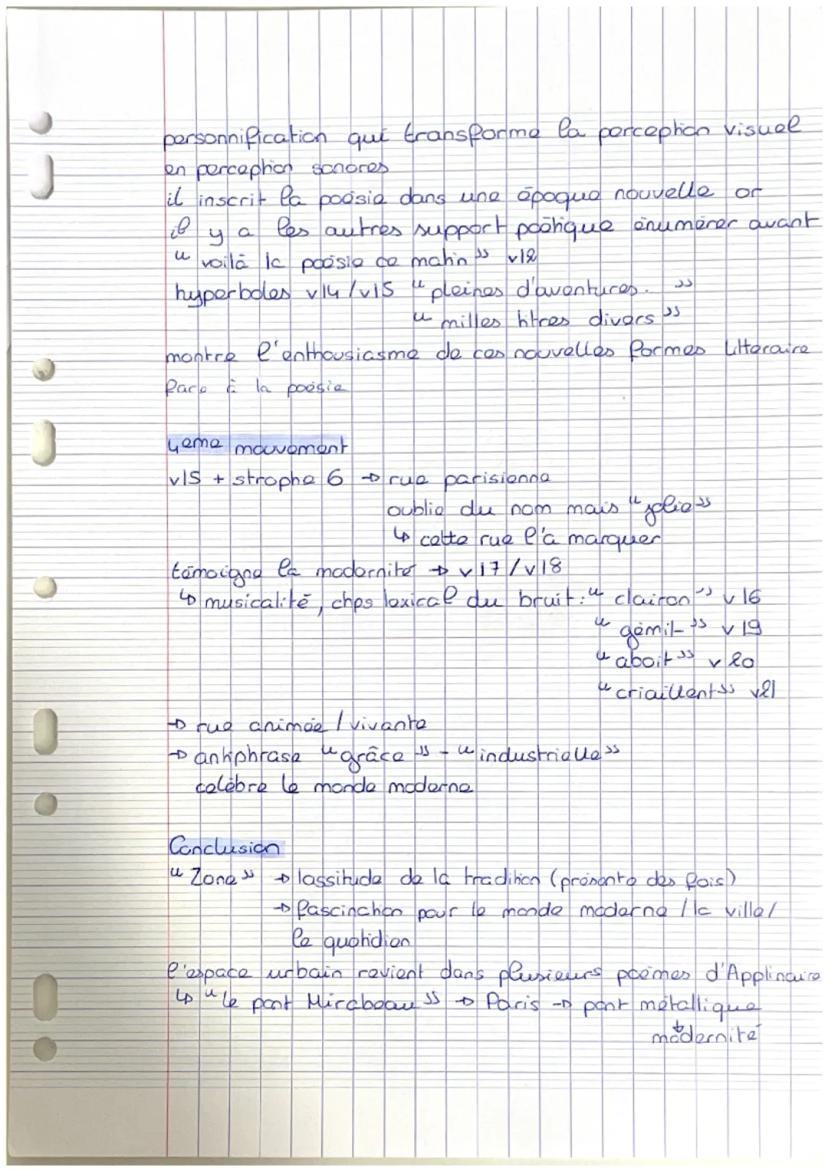 personnification qui transforme la perception visuel
en perception sonores
il inscrit la poésie dans une époque nouvelle or
il y a les autres support poétique énumérer avant
"voilà la poésie ce matin" v12
hyperboles v14/v15 "pleines d'aventures. "
"milles titres divers"
montre l'enthousiasme de ces nouvelles formes litteraire
face à la poésie
4eme mouvement
v15 + strophe 6 → rue parisienne
oublie du nom mais "jolie"
↳ cette rue l'a marquer
témoigne la modernité → v17/v18
↳ musicalité, chps lexical du bruit : "clairon" v16
"gémit" v19
"aboit" v20
"criaillent" v21
→ rue animée / vivante
→ antiphrase "grâce" - "industrielle"
célèbre le monde moderne
Conclusion
"Zone" → lassitude de la tradition (présente des fois)
→ fascination pour le monde moderne / la ville /
le quotidien
l'espace urbain revient dans plusieurs poèmes d'Applinaire
↳ "le pont Mirabeau" → Paris → pont métallique
↓
modernité